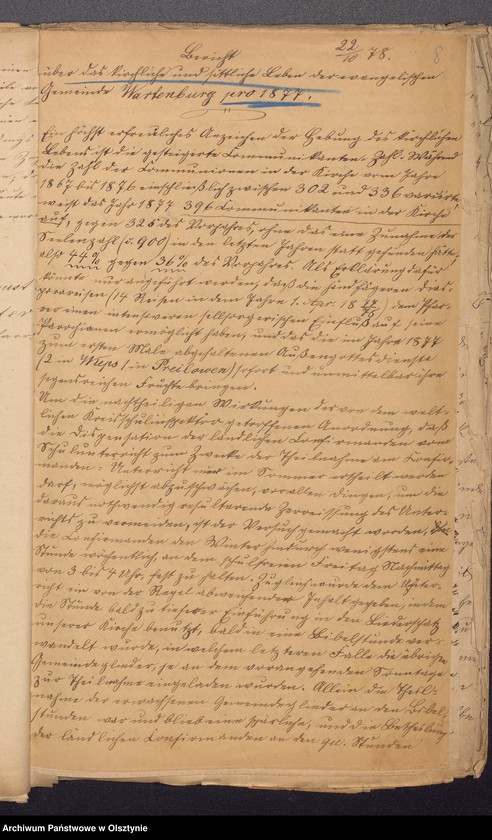 22/10 78.
8
Bericht
über das kirchliche und sittliche Leben der evangelischen
Gemeinde Wartenburg pro 1877.
Ein höchst erfreuliches Anzeichen der Hebung des kirchlichen
Lebens ist die gesteigerte Communikanten-Zahl. Während
die Zahl der Communionen in der Kirche vom Jahre
1867 bis 1876 einschließlich zwischen 302 und 336 variirte,
weist das Jahr 1877 396 Communikanten in der Kirche
auf, gegen 325 des Vorjahres, ohne das eine Zunahme der
Seelenzahl (c. 900) in den letzten Jahren statt gefunden hätte,
also 44% gegen 36% des Vorjahres. Als Erklärung dafür
könnte nur angeführt werden, daß die häufigeren Dias-
porareisen (14 Reisen in dem Jahre 1. Apr. 18 77/78) dem Pfar-
rer einen intensiveren seelsorgerischen Einfluß auf seine
Parochianen ermöglicht haben, und das die im Jahre 1877
zum ersten Male abgehaltenen Außengottesdienste
(2 in Wieps 1 in Preilowen) sofort und unmittelbar ihre
segensreichen Früchte bringen.
Um die nachtheiligen Wirkungen der von dem welt-
lichen Kreisschulinspektor getroffenen Anordnung, daß
die Dispensation der ländlichen Confirmanden vom
Schulunterricht zum Zwecke der Theilnahme am Confir-
manden-Unterricht nur im Sommer ertheilt werden
darf, möglichst abzuschwächen, vor allen Dingen, um die
daraus nothwendig resultirende Zerreissung des Unter-
richts zu vermeiden, ist der Versuch gemacht worden,
die Confirmanden den Winter hindurch wenigstens eine
Stunde wöchentlich, an dem schulfreien Freitag Nachmittag
von 3 bis 4 Uhr, fest zu halten. Zugleich wurde dem Unter-
richt ein von der Regel abweichender Inhalt gegeben, indem
die Stunde bald zu tieferer Einführung in den Liederschatz
unserer Kirche benutzt, bald in eine Bibelstunde ver-
wandelt wurde, in welchem letzteren Falle die übrigen
Gemeindeglieder, je an dem vorangehenden Sonntage
zur Theilnahme eingeladen wurden. Allein die Theil-
nahme der erwachsenen Gemeindeglieder an den Bibel-
stunden war und blieb eine spärliche, und die Betheiligung
der ländlichen Confirmanden an den qu. Stunden
Archiwum Państwowe w Olsztynie